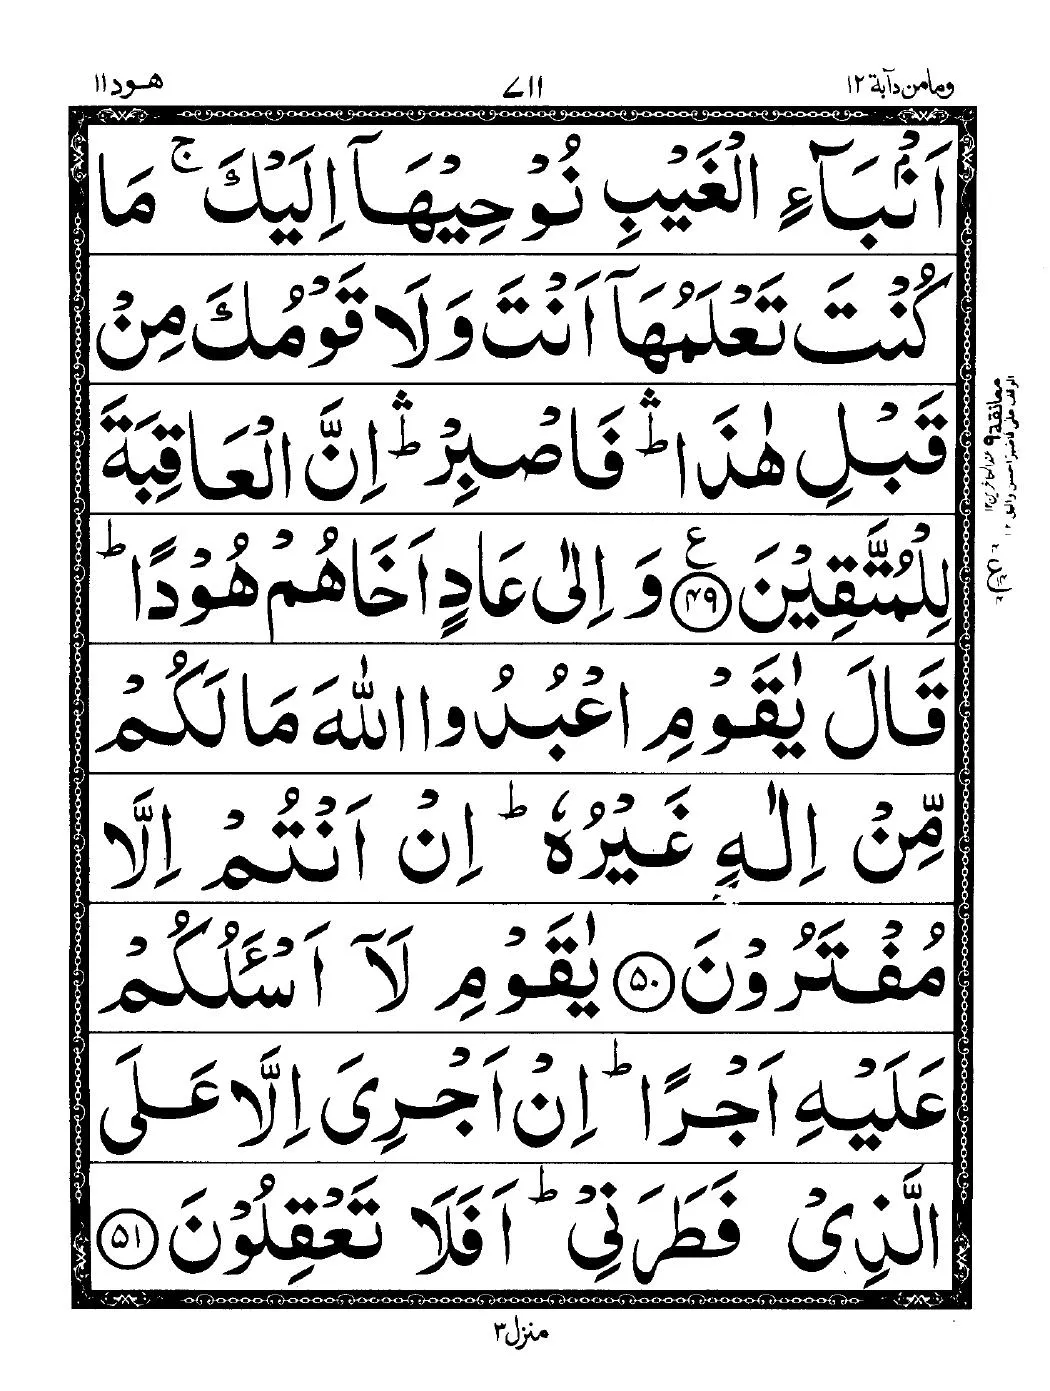 ومامن دآبة ۱۲
۷۱۱
هود ۱۱
اَنْۢبَآءِ الْغَيْبِ نُوْحِيْهَآ اِلَيْكَ ۚ مَا
كُنْتَ تَعْلَمُهَآ اَنْتَ وَلَا قَوْمُكَ مِنْ
قَبْلِ هٰذَا ۛؕ فَاصْبِرْ ۛؕ اِنَّ الْعَاقِبَةَ
لِلْمُتَّقِيْنَ ﴿۴۹﴾ ع وَ اِلٰى عَادٍ اَخَاهُمْ هُوْدًا ؕ
قَالَ يٰقَوْمِ اعْبُدُوا اللّٰهَ مَا لَكُمْ
مِّنْ اِلٰهٍ غَيْرُهٗ ؕ اِنْ اَنْتُمْ اِلَّا
مُفْتَرُوْنَ ﴿۵۰﴾ يٰقَوْمِ لَآ اَسْـَٔلُكُمْ
عَلَيْهِ اَجْرًا ؕ اِنْ اَجْرِىَ اِلَّا عَلَى
الَّذِىْ فَطَرَنِىْ ؕ اَفَلَا تَعْقِلُوْنَ ﴿۵۱﴾
معانقة ۹
منزل ۳